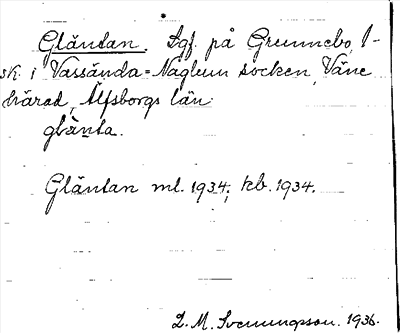 Gläntan. Lgf. på Grunnebo, I-
sk. i Vassända-Naglum socken, Väne
härad, Älfsborgs län.
glànta.
Gläntan ml. 1934; kb. 1934.
L. M. Svenungsson. 1936.